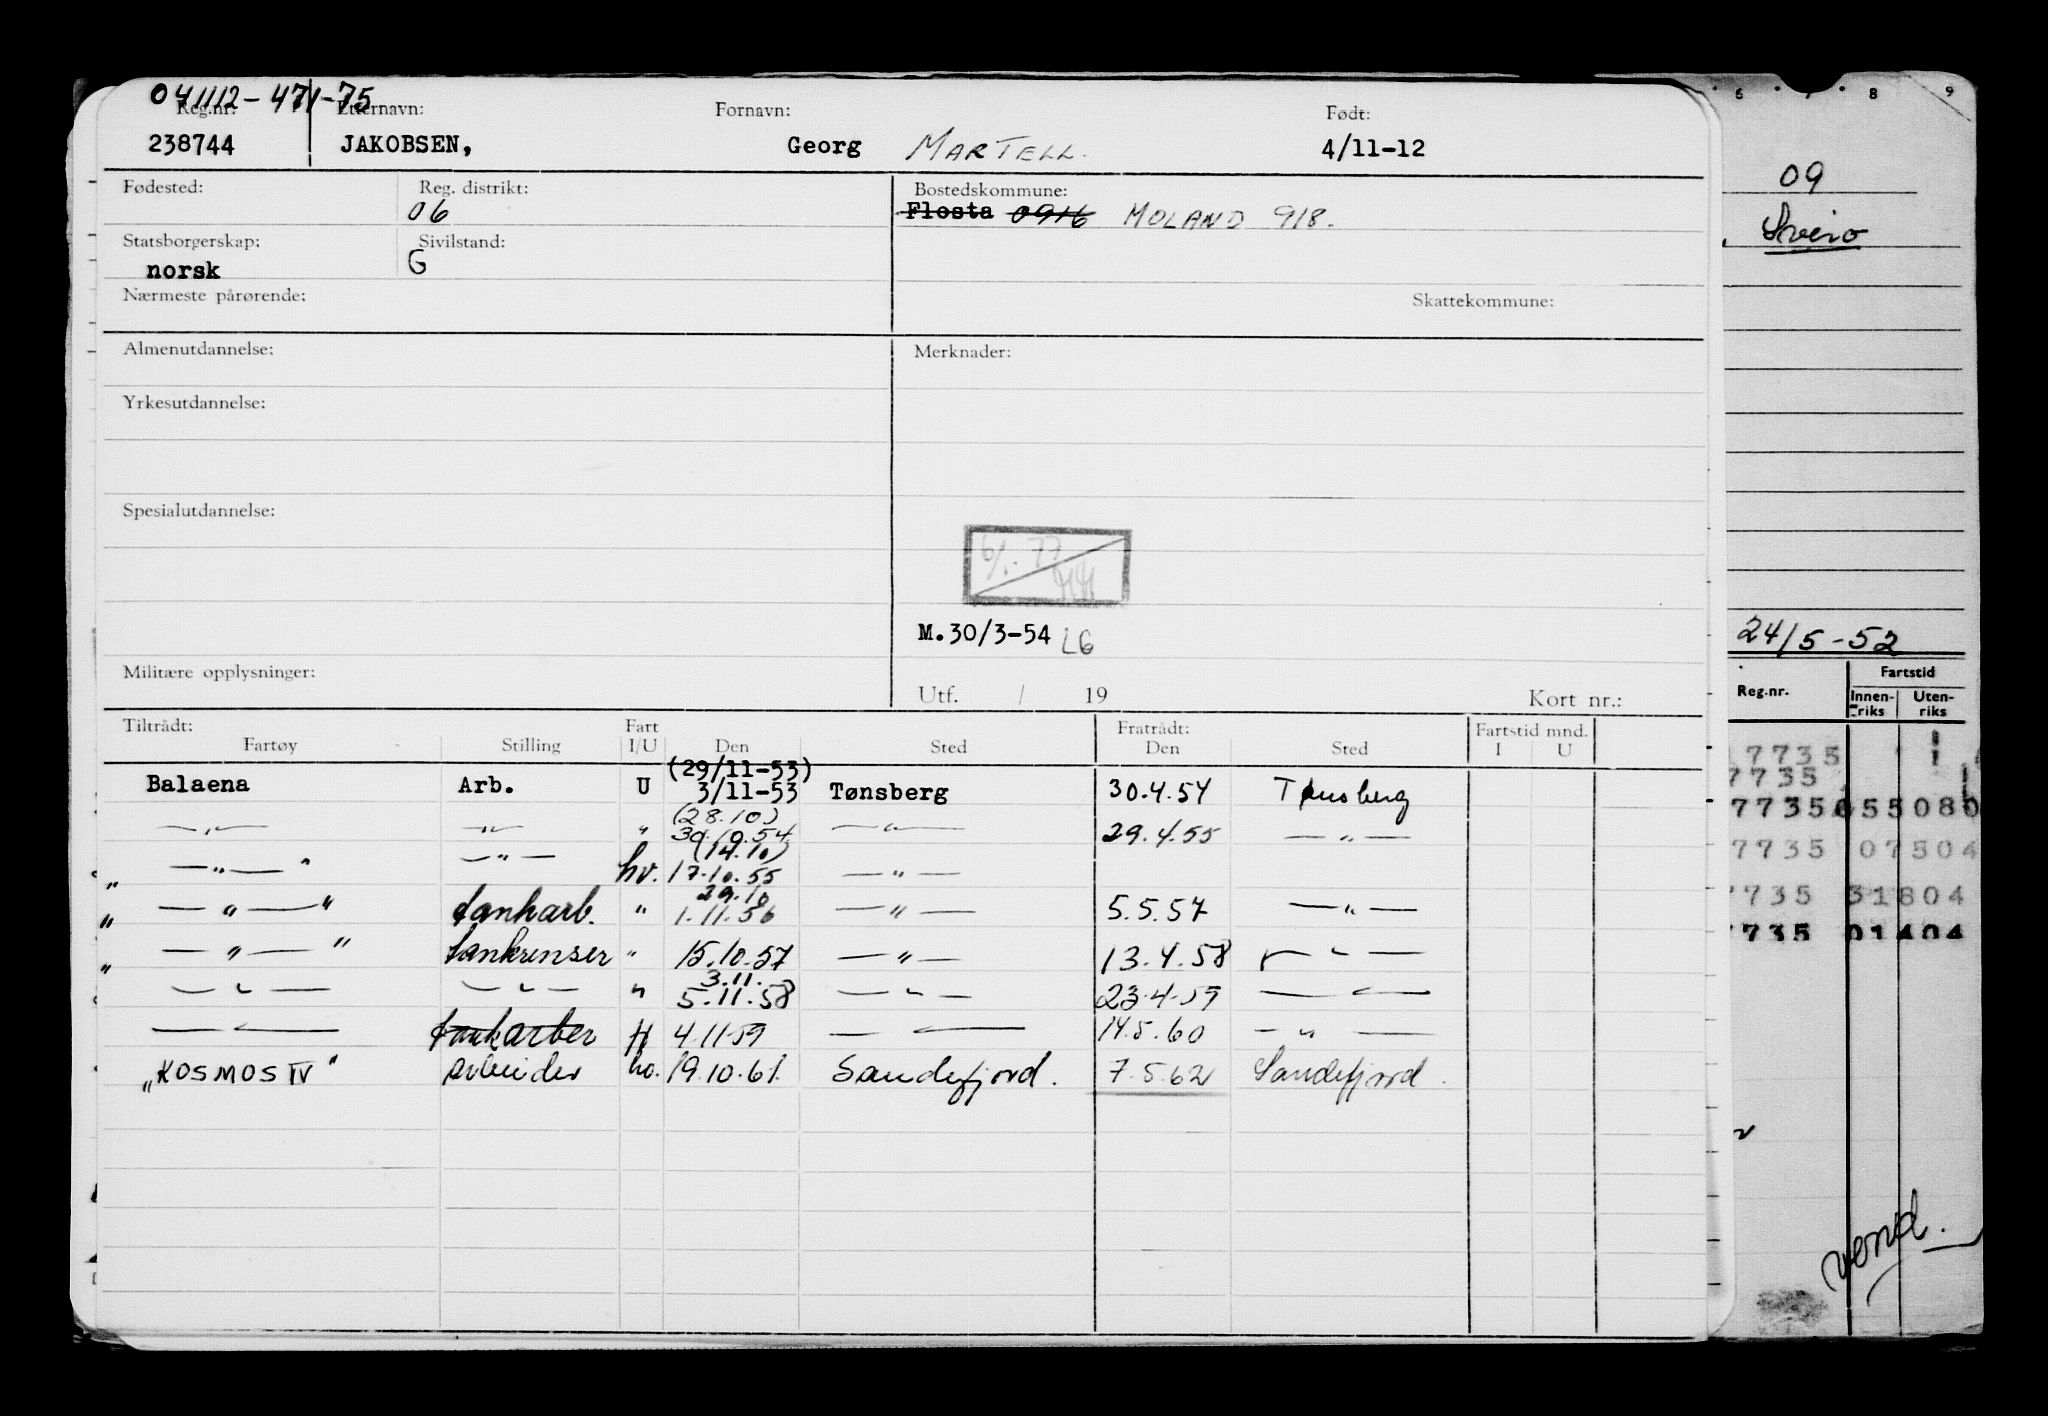 041112-471-75
Reg.nr. Etternavn: Fornavn: Født:
238744 JAKOBSEN, Georg MARTELL. 4/11-12
Fødested: Reg. distrikt: Bostedskommune:
06 Flosta 0916 MOLAND 918.
Statsborgerskap: Sivilstand:
norsk G
Nærmeste pårørende: Skattekommune:
Almenutdannelse: Merknader:
Yrkesutdannelse:
Spesialutdannelse:
6/1-77
M.30/3-54 LG
Militære opplysninger:
Utf. / 19 Kort nr.:
Tiltrådt: Fart Fratrådt: Fartstid mnd.
Fartøy Stilling I/U Den Sted Den Sted I U
(29/11-53)
Balaena Arb. U 3/11-53 Tønsberg 30.4.54 Tønsberg
(28.10)
—"— —"— " 30.10.54 —"— 29.4.55 —"—
(14.10)
" —"— " —"— hv. 17.10.55 —"—
29.10
" —"— " tankarb. " 1.11.56 —"— 5.5.57 —"—
" —"— " tankrenser " 15.10.57 —"— 13.4.58 —"—
3.11.
—"— —"— " 5.11.58 —"— 23.4.59 —"—
—"— tankarber H 4.11.59 —"— 14.5.60 —"—
"KOSMOS IV" arbeider hv. 19.10.61. Sandefjord. 7.5.62 Sandefjord.
6 7 8 9
09
Sveio
24/5-52
Reg.nr. Fartstid
Innen-riks Uten-riks
7735
7735
7735 055080
7735 07504
7735 31804
7735 01404
vend.